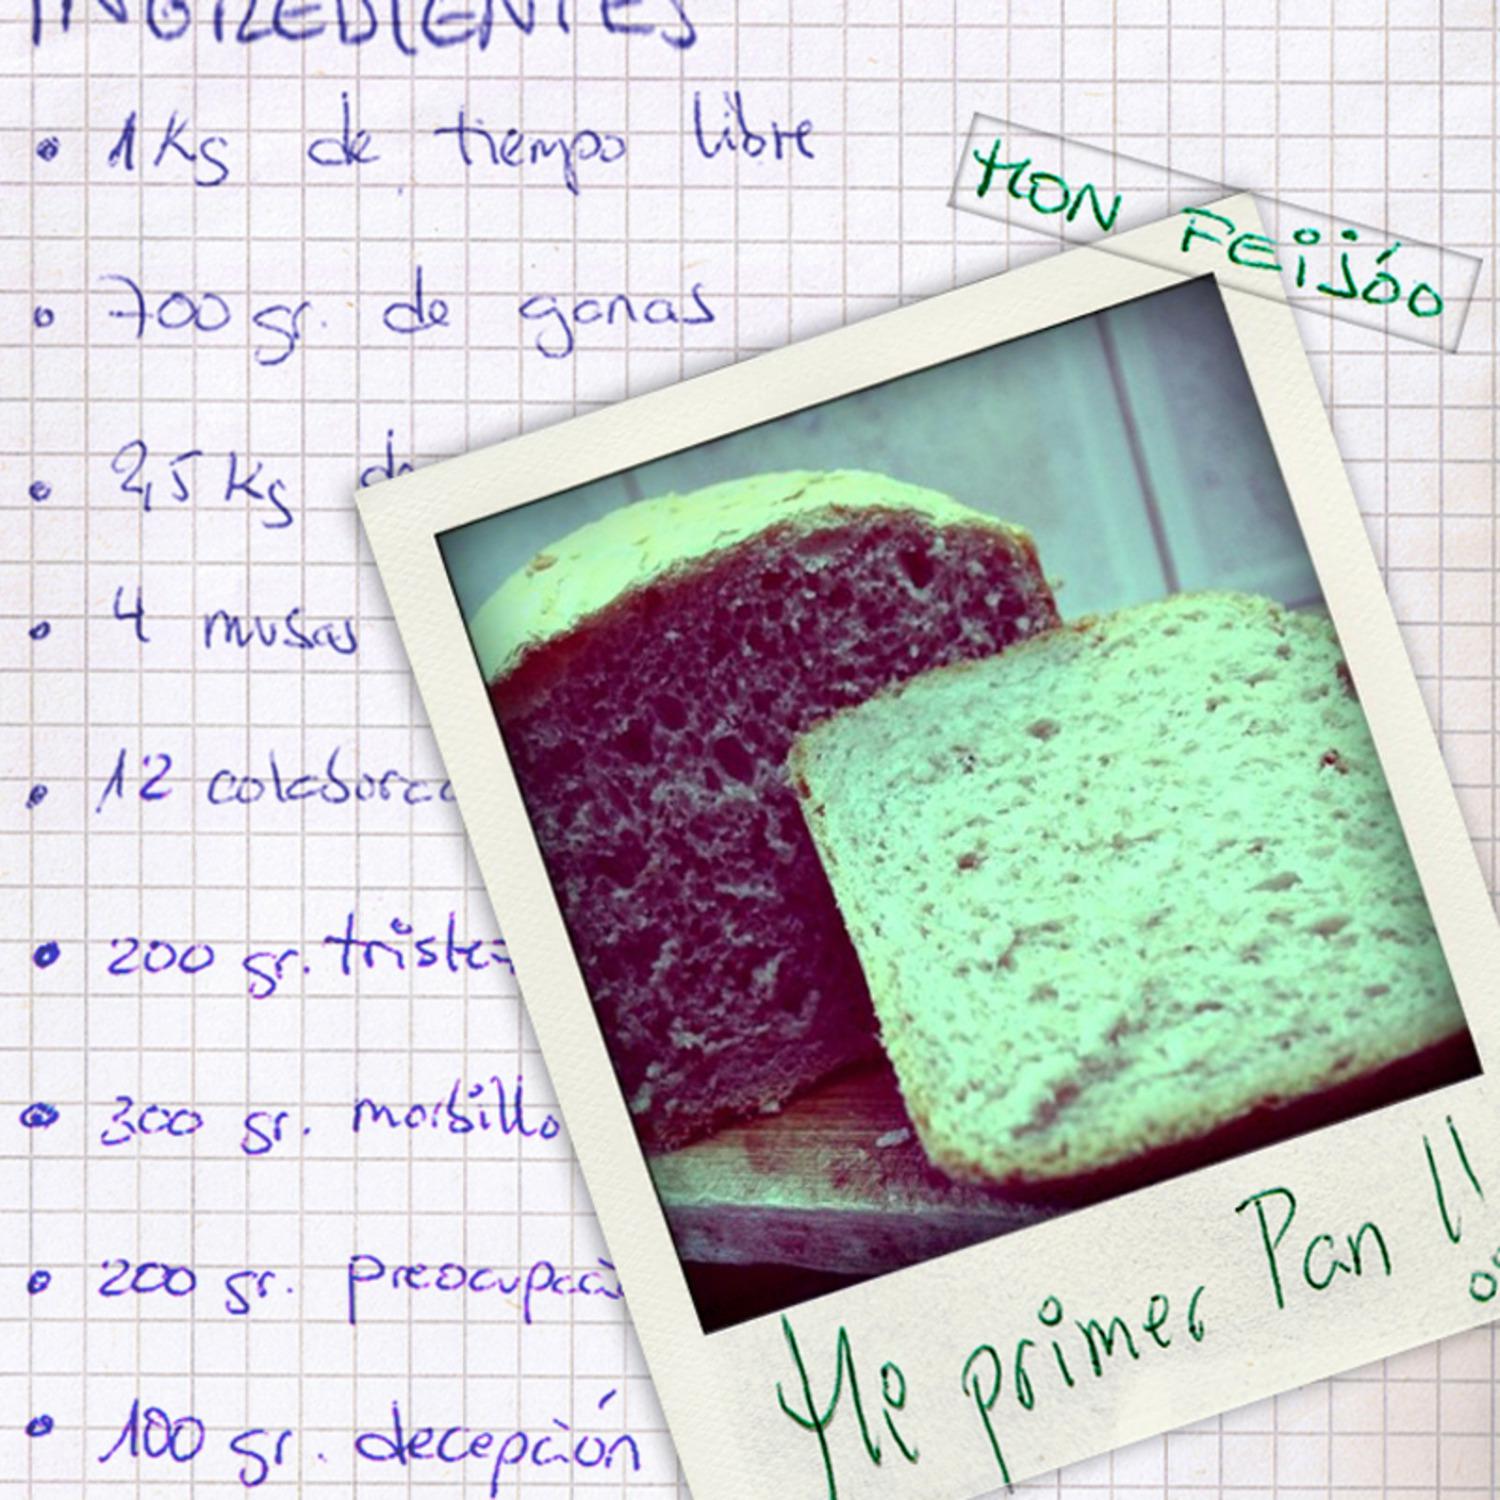 INGREDIENTES
• 1 Kg de tiempo libre
• 700 gr. de ganas
• 2,5 Kg
• 4 musas
• 12
• 200 gr.
• 300 gr. morbillo
• 200 gr.
• 100 gr. decepción
MON FEijóo
Mi primer Pan !!